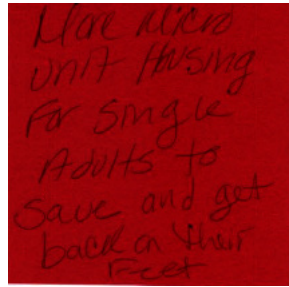 More Micro
Unit Housing
For Single
Adults to
Save and get
back on their
Feet